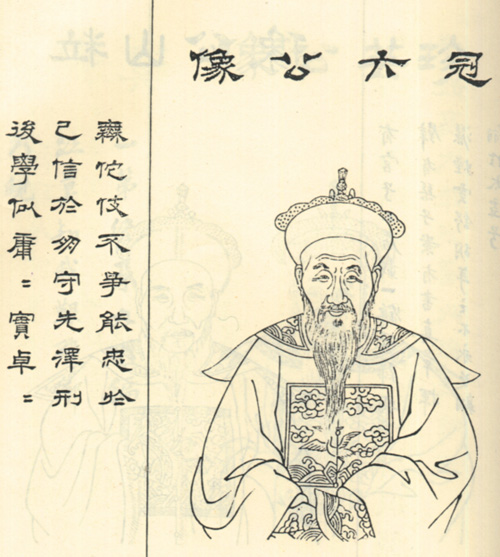 冠六公像
無佗伎不爭能忠於
己信於物守先澤刑
後學似庸〻實卓〻